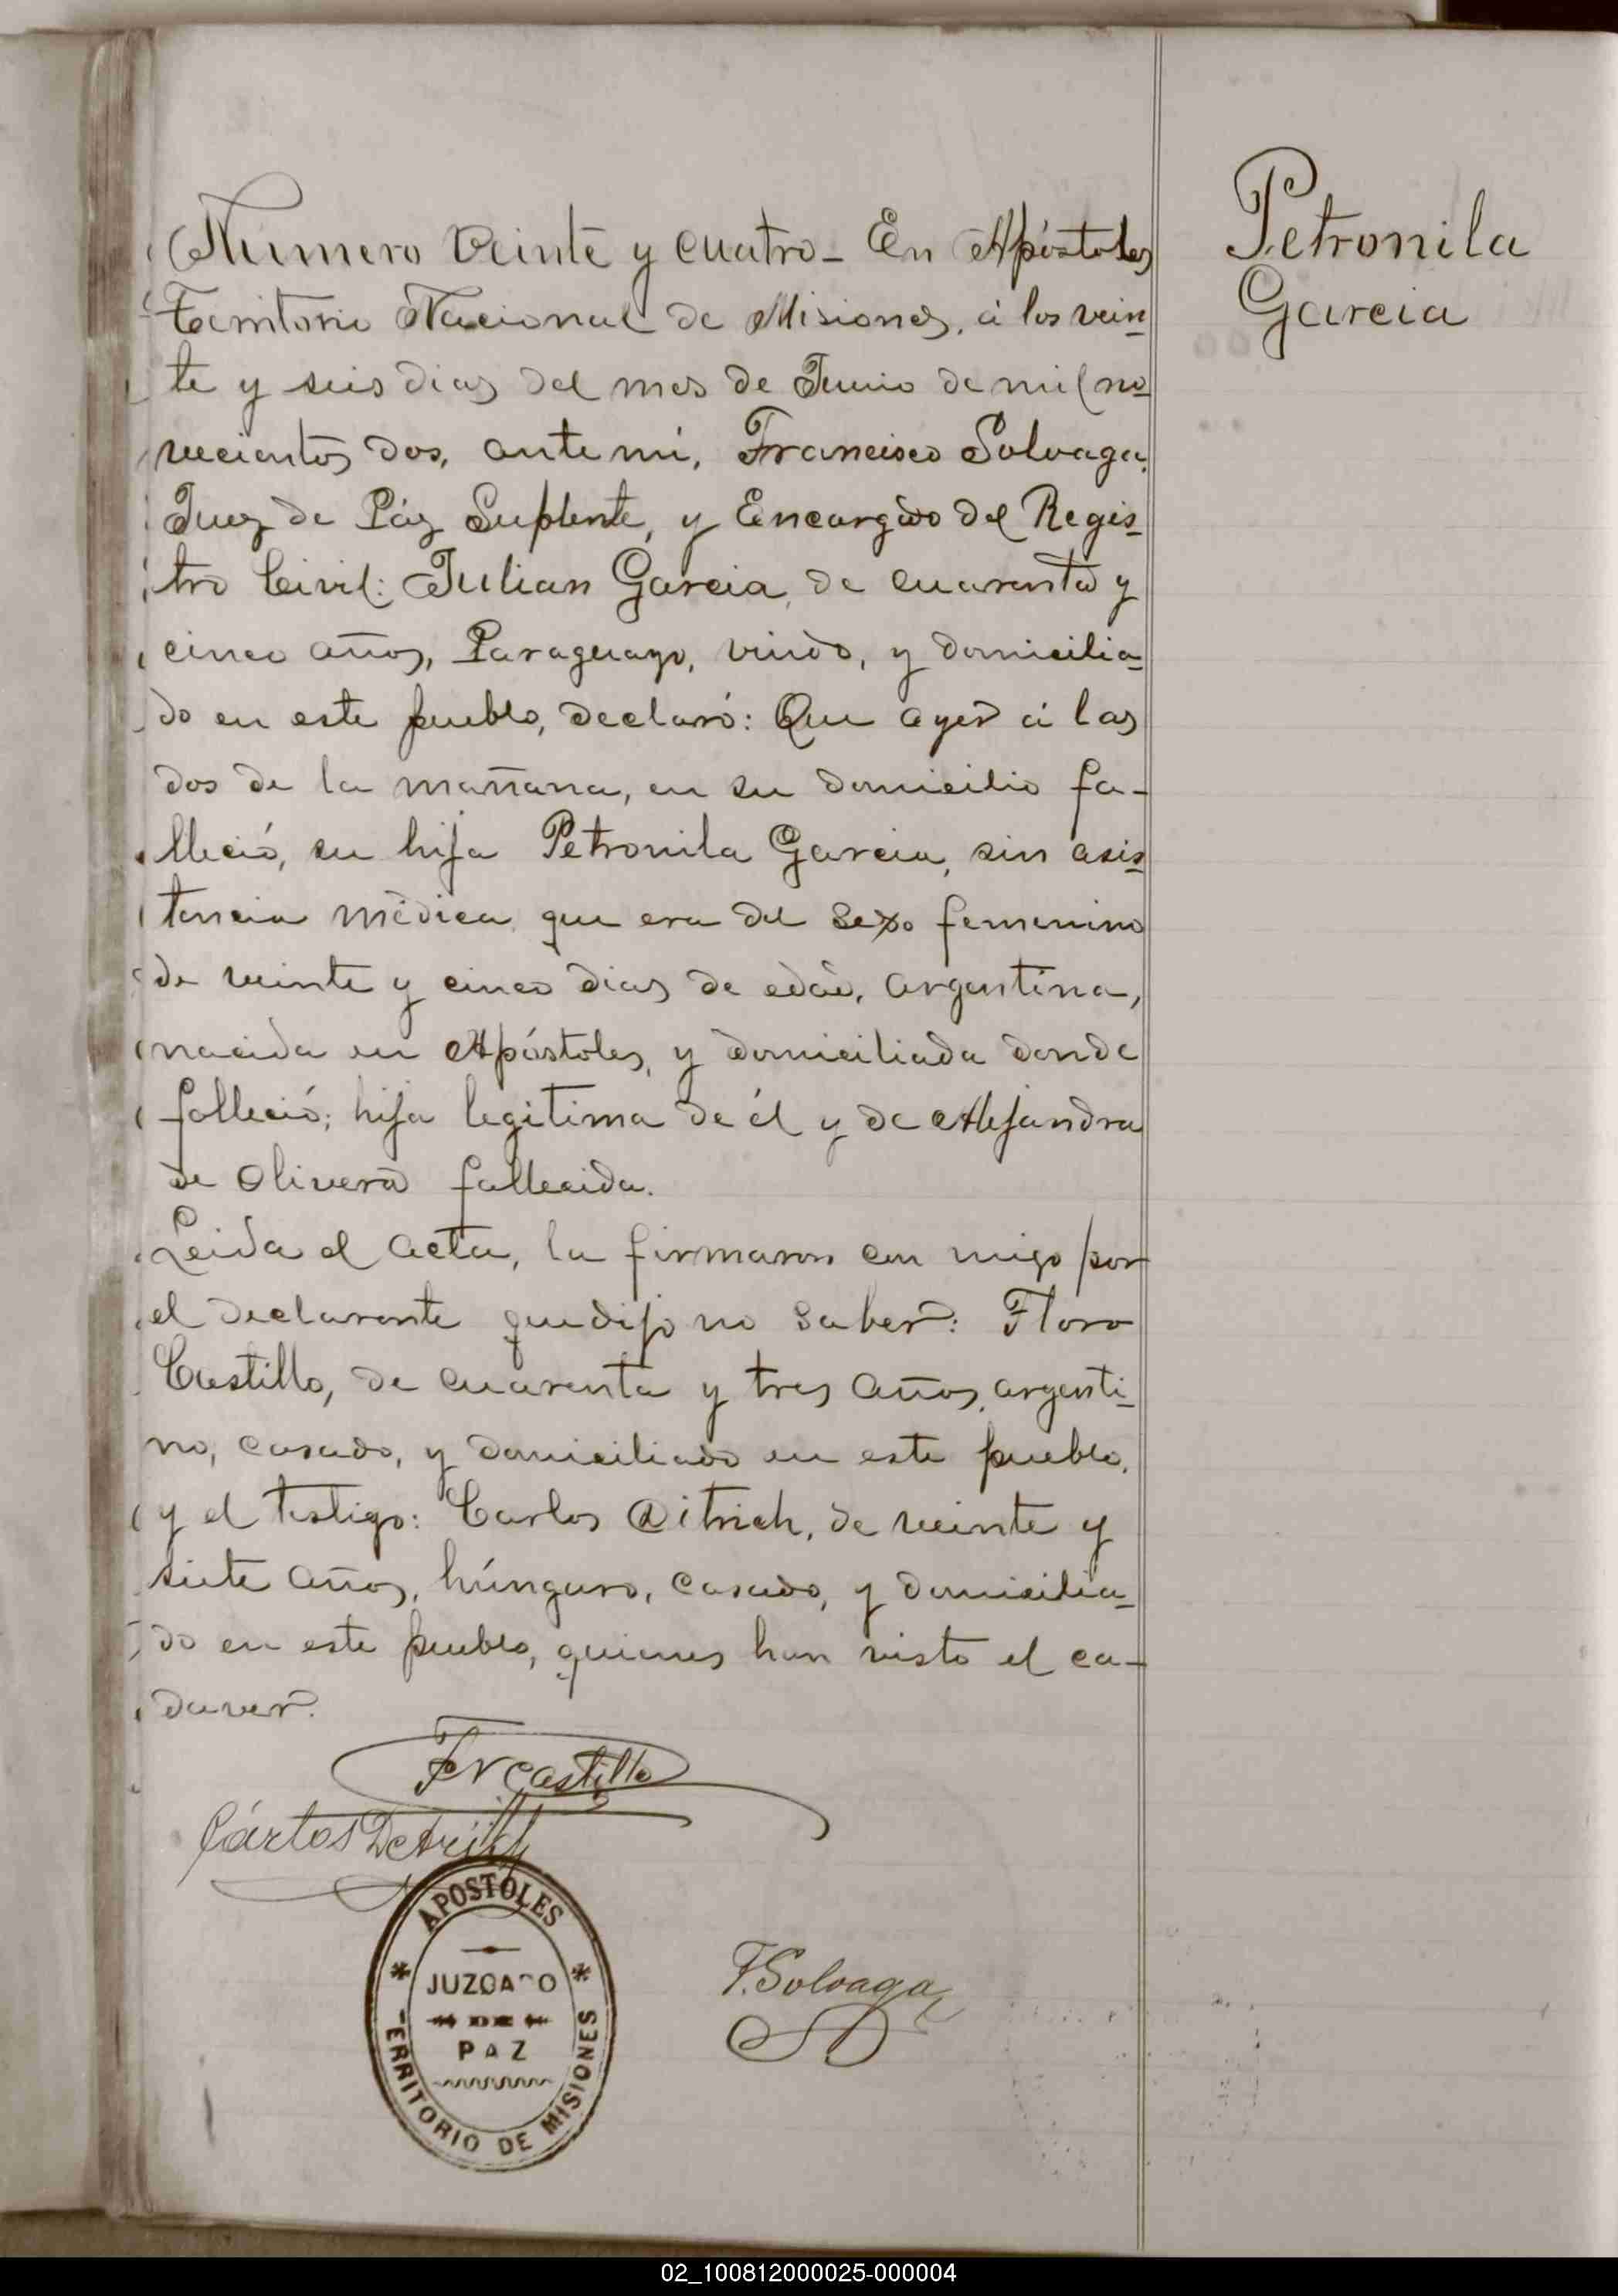 Petronila
Garcia
Número Veinte y cuatro - En Apóstoles
Territorio Nacional de Misiones, á los vein
te y seis dias del mes de Junio de mil no
vecientos dos, ante mí, Francisco Solvaga,
Juez de Páz Suplente, y Encargado del Regis
tro Civil: Julian Garcia, de cuarenta y
cinco años, Paraguayo, viudo, y domicilia
do en este pueblo, declaró: Que ayer á las
dos de la mañana, en su domicilio fa-
lleció, su hija Petronila Garcia, sin asis
tencia médica que era del sexo femenino
de veinte y cinco dias de edad, argentina,
nacida en Apóstoles, y domiciliada donde
falleció; hija legitima de él y de Alejandra
de Olivera fallecida.
Leida el acta, la firmaron con migo por
el declarante que dijo no saber: Floro
Castillo, de cuarenta y tres años, argenti
no, casado, y domiciliado en este pueblo,
y el testigo: Carlos Ditrich, de veinte y
siete años, húngaro, casado, y domicilia
do en este pueblo, quienes han visto el ca-
daver.
Castillo
Cárlos
APOSTOLES
JUZGADO
DE
PAZ
TERRITORIO DE MISIONES
F. Solvaga
02_100812000025-000004